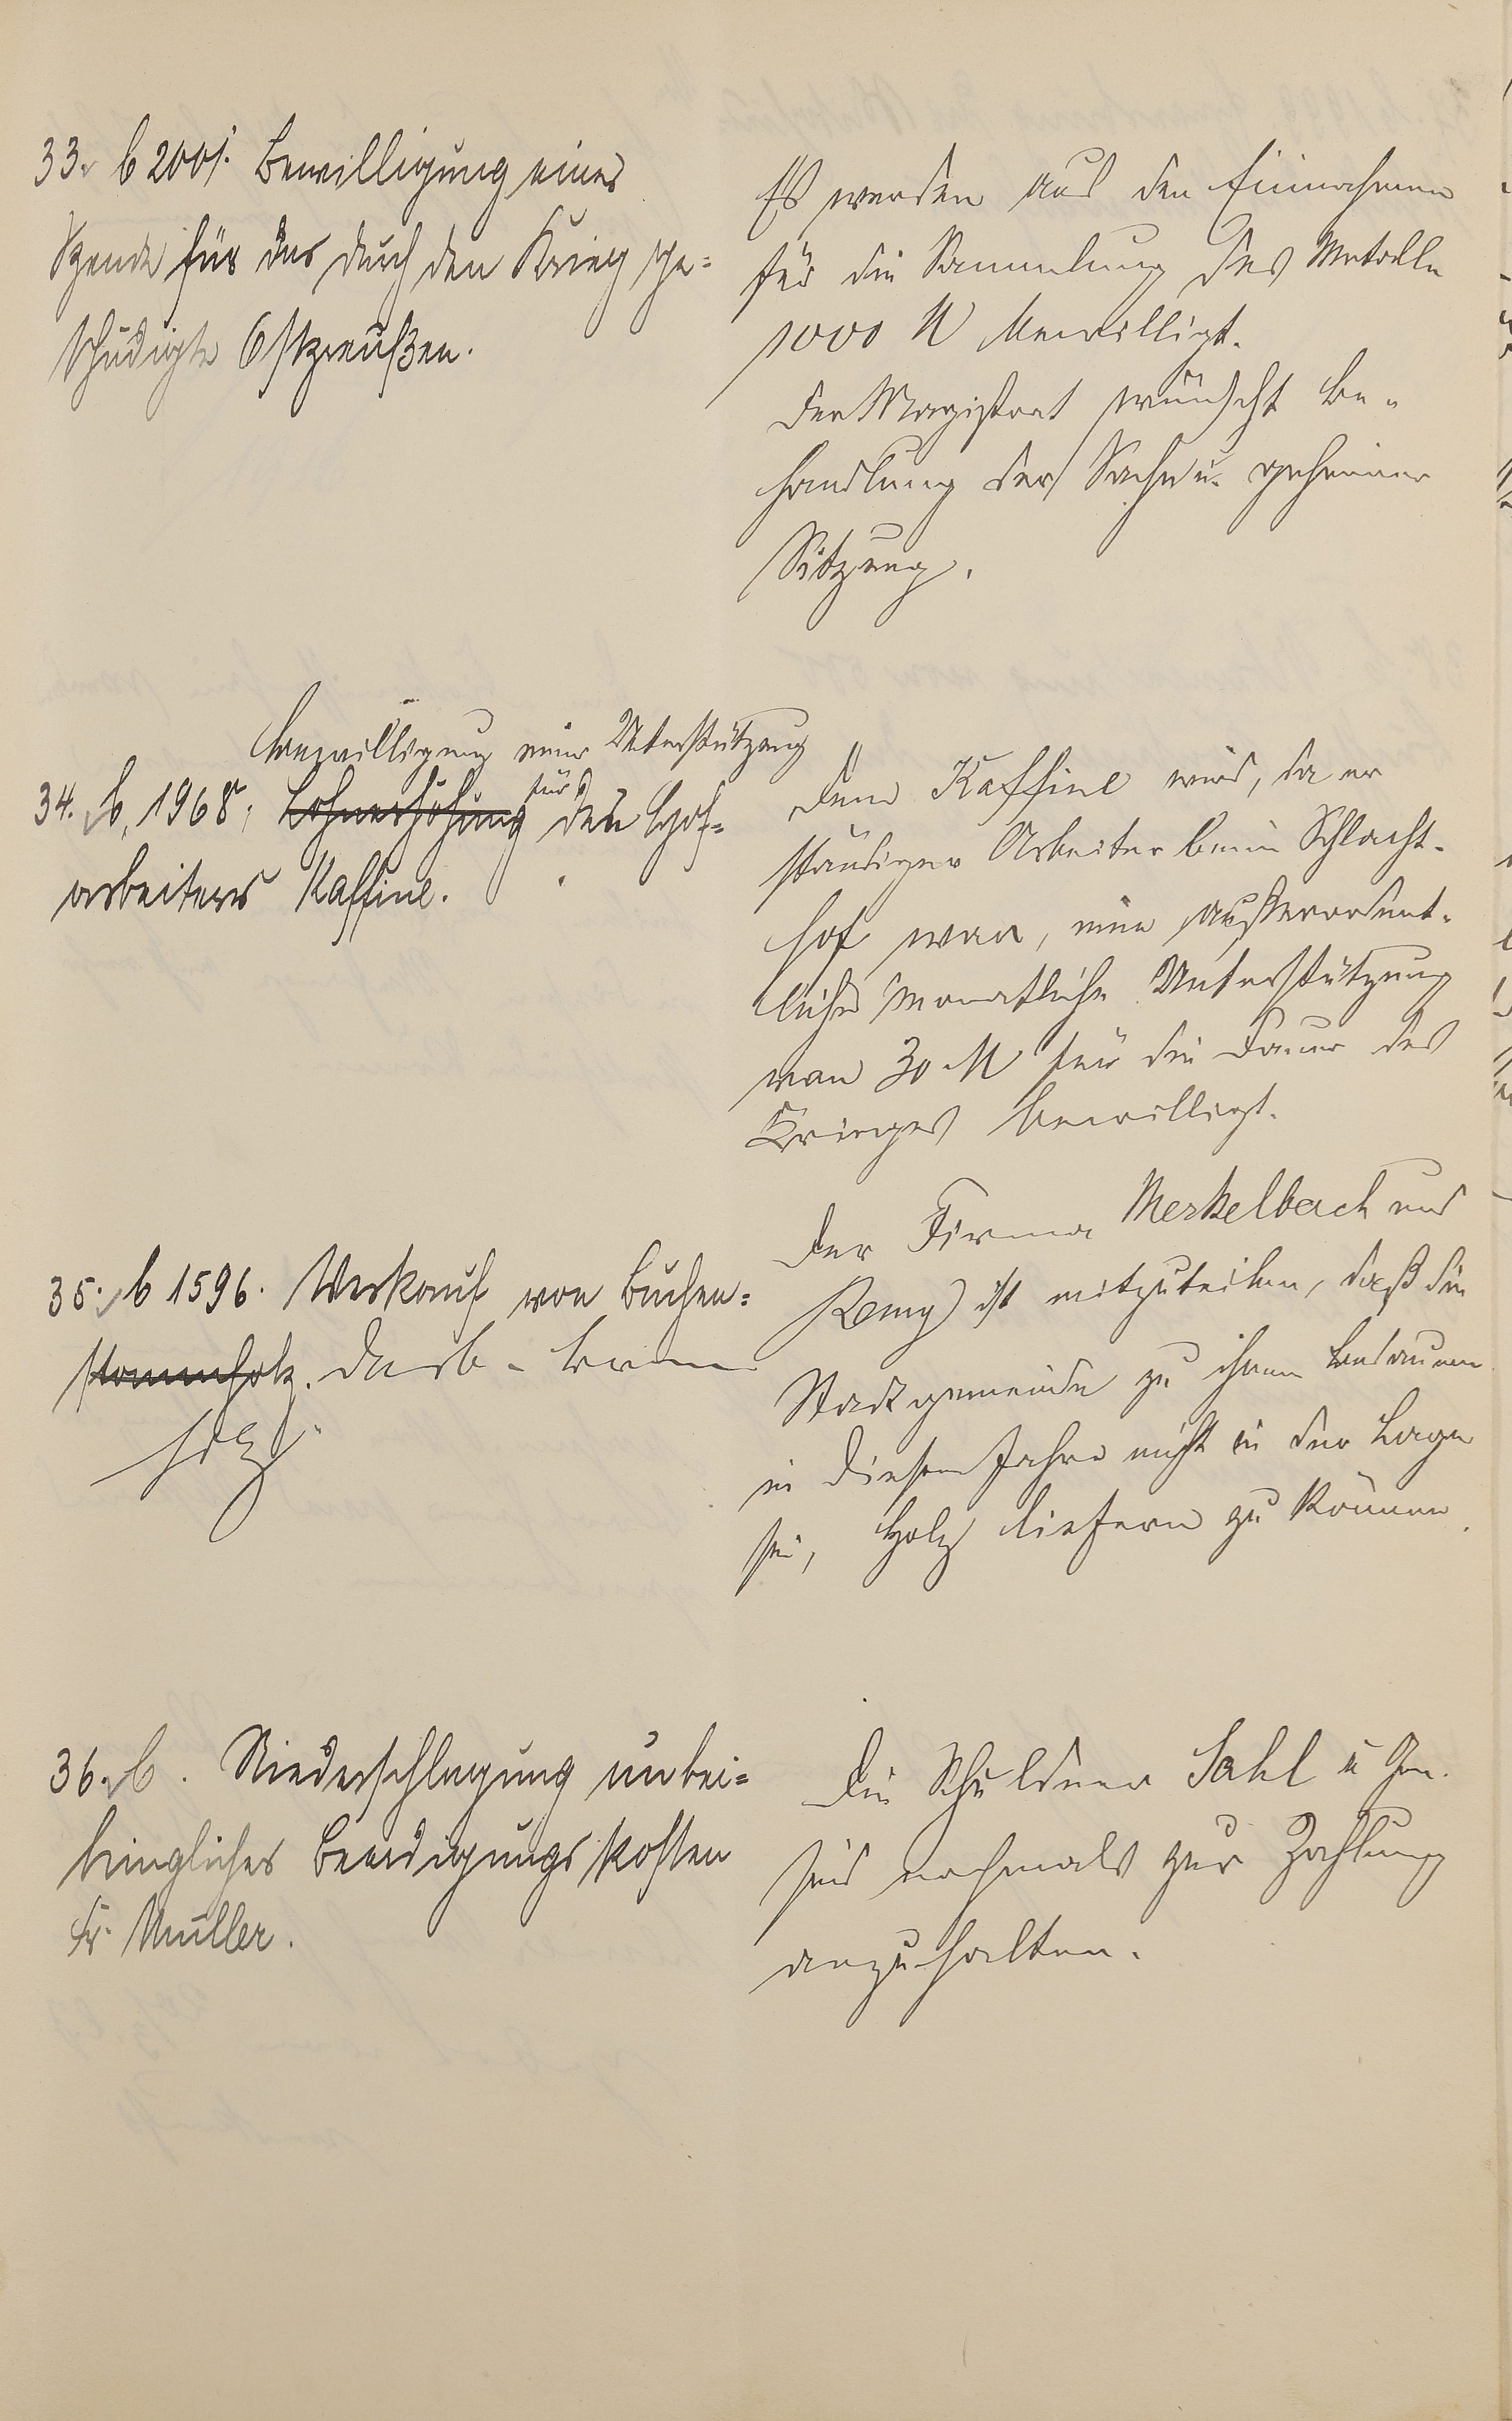 33. b 2001. Bewilligung einer
Spende für das durch den Krieg ge=
schädigte Ostpreußen.
Es werden aus den Einnahmen
für die Sammlung des Metalls
1000 M bewilligt.
Der Magistrat wünscht Be-
handlung der Sache i. geheimer
Sitzung.
Bewilligung einer Unterstützung
34. b. 1968. Lohnerhöhung für den Gas=
arbeiters Kaffine.
Dem Kaffine wird, da er
ständiger Arbeiter beim Schlacht-
hof war, eine außerordent-
liche monatliche Unterstützung
von 30 M für die Dauer des
Krieges bewilligt.
35. b 1596. Verkauf von Buchen=
stammholz. Derb- Brenn
holz.
Der Firma Merkelbach und
Remy ist mitzuteilen, daß die
Stadtgemeinde zu ihrem Bedauern
in diesem Jahre nicht in der Lage
sei, Holz liefern zu können.
36. b. Niederschlagung unbei=
bringlicher Beerdigungskosten
Fr. Müller.
Die Schuldner Sahl u Gen.
sind nochmals zur Zahlung
anzuhalten.